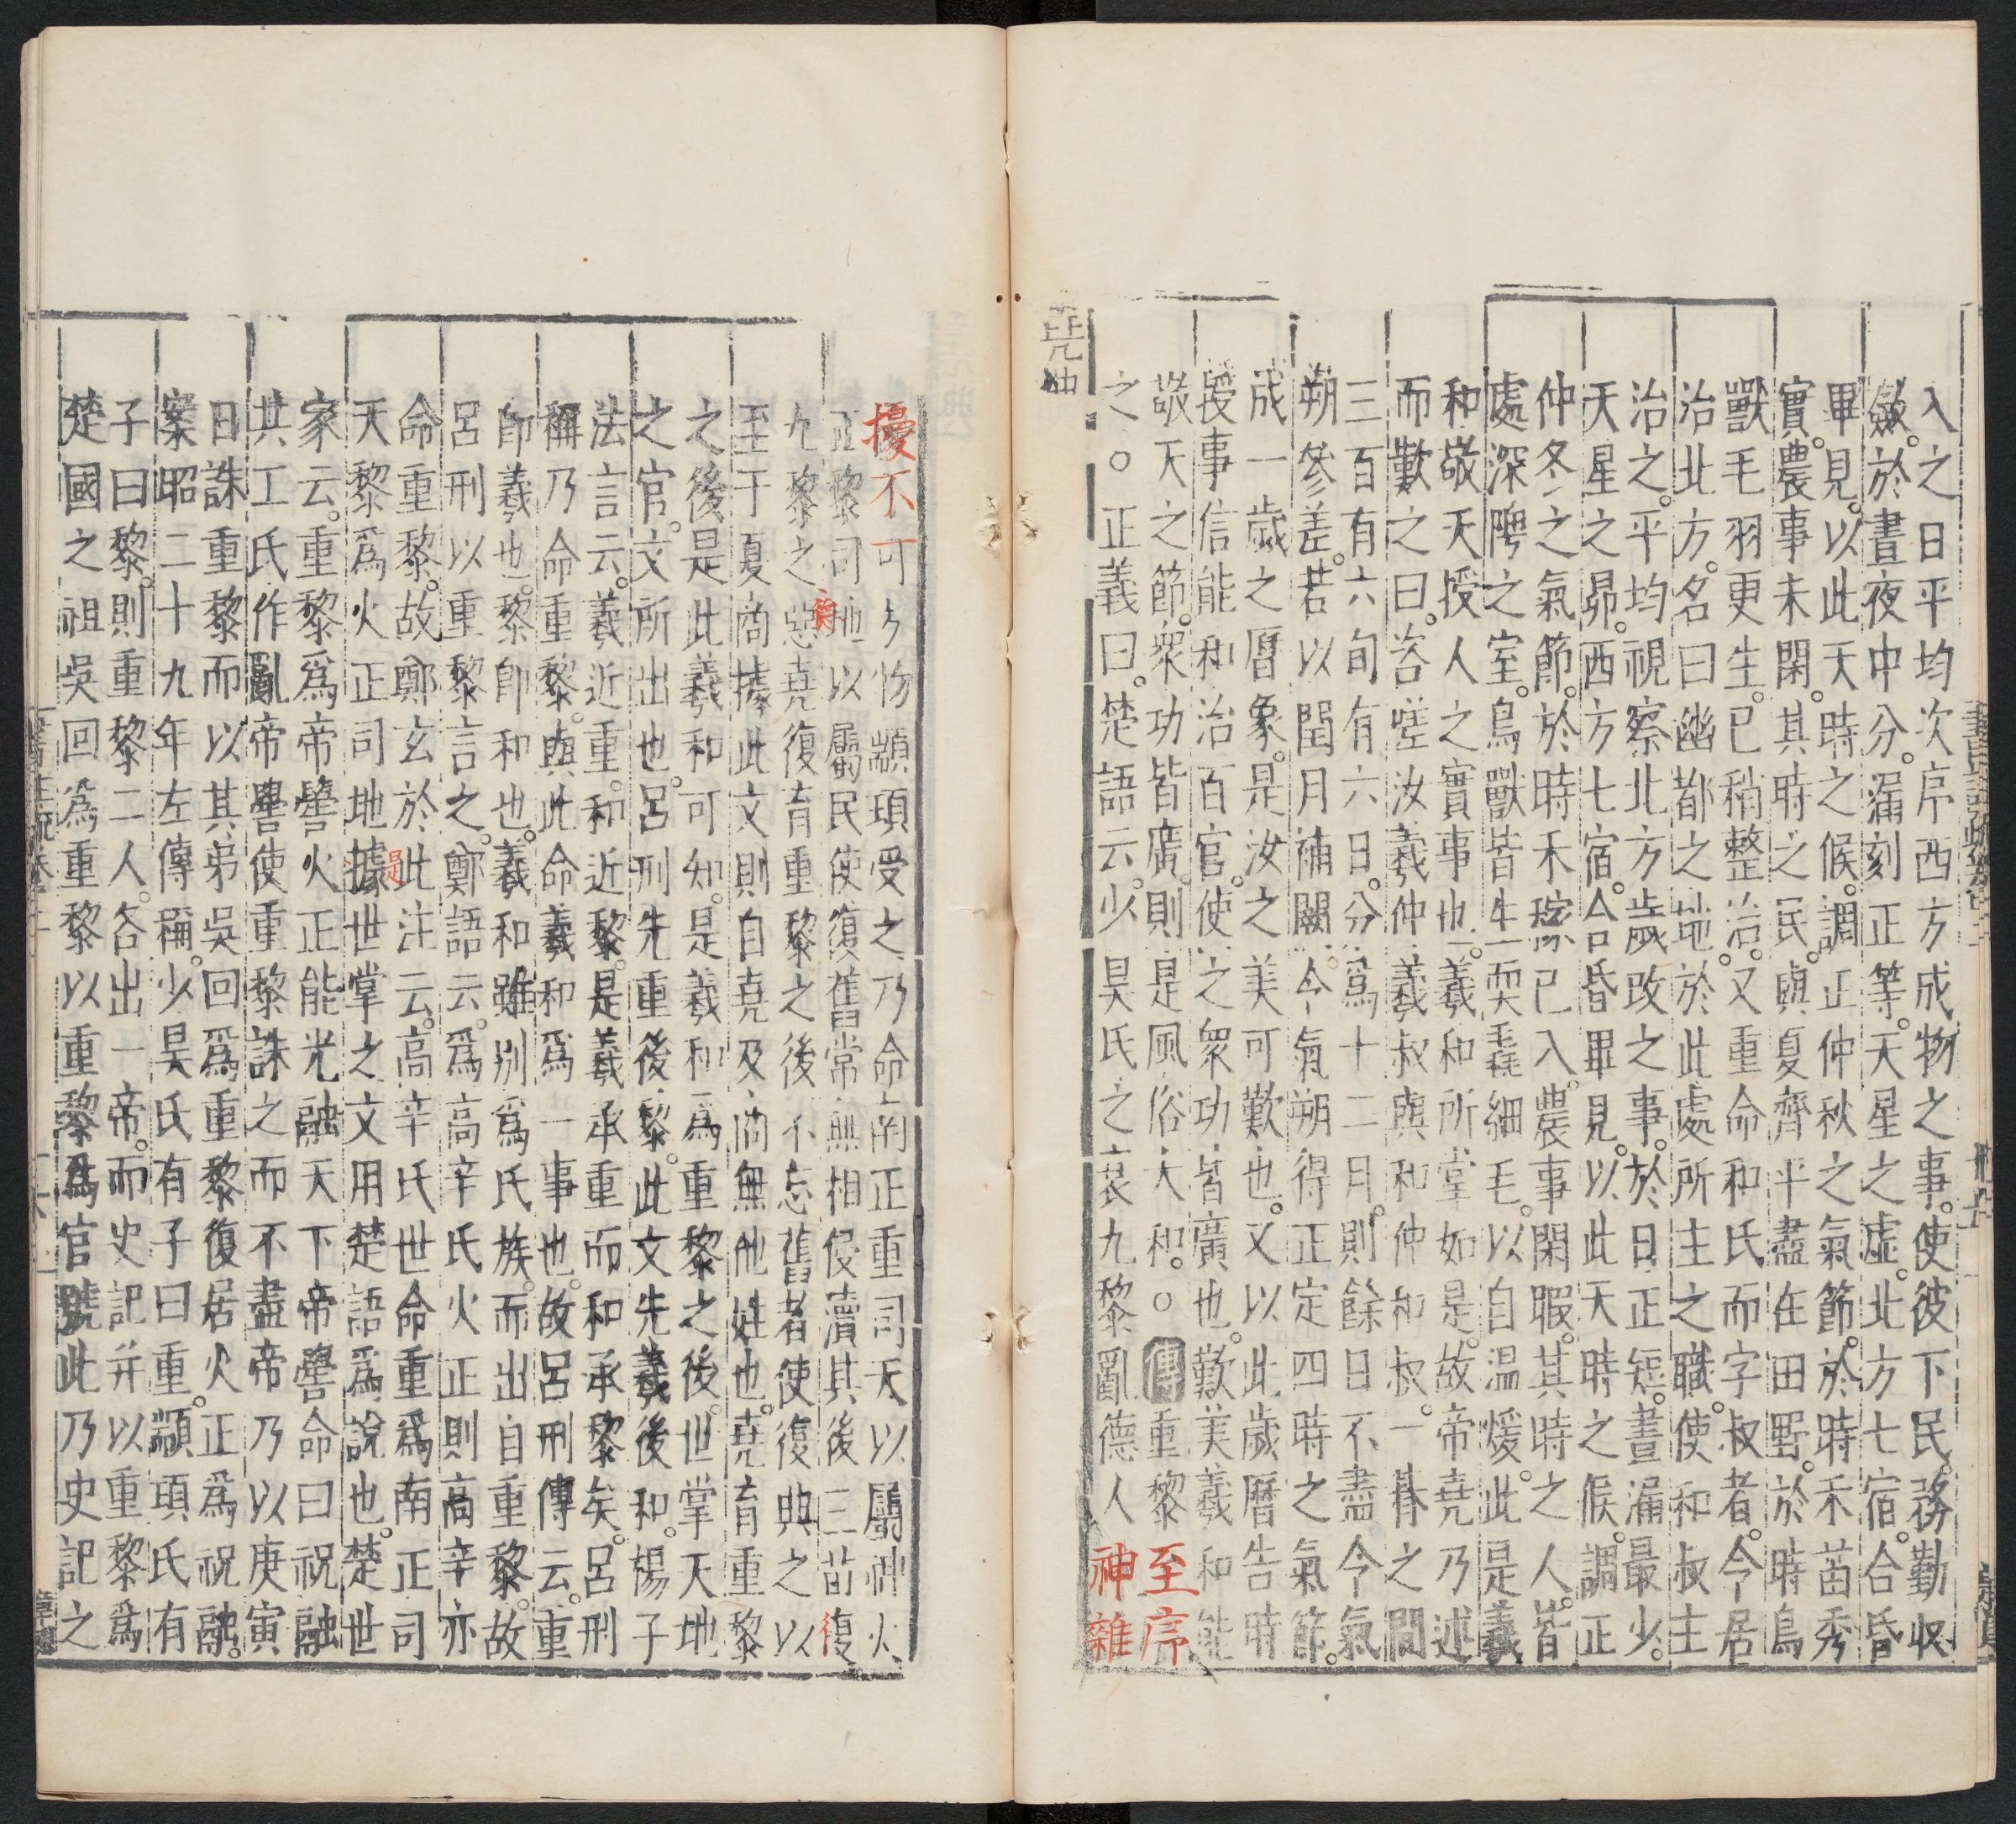 入之日平均次序西方成物之事使彼下民務勤收
斂於晝夜中分漏刻正等天星之虛北方七宿合昏
畢見以此天時之候調正仲秋之氣節於時禾苗秀
實農事未閑其時之民與夏齊平盡在田野於時鳥
獸毛羽更生已稍整治又重命和氏而字叔者今居
治北方名曰幽都之地於此處所主之職使和叔主
治之平均視察北方歲改之事於日正短晝漏最少
天星之昴西方七宿合昏畢見以此天時之候調正
仲冬之氣節於時禾稼已入農事閑暇其時之人皆
處深隩之室鳥獸皆生耎毳細毛以自温煖此是羲
和敬天授人之實事也羲和所掌如是故帝堯乃述
而歎之曰咨嗟汝羲仲羲叔與和仲和叔一朞之間
三百有六旬有六日分爲十二月則餘日不盡今氣
朔參差若以閏月補闕今氣朔得正定四時之氣節
成一歲之曆象是汝之美可歎也又以此歲曆告時
授事信能和治百官使之衆功皆廣也歎美羲和能
敬天之節衆功皆廣則是風俗大和○傳重黎至序
之○正義曰楚語云少昊氏之衰九黎亂德人神雜
擾不可方物顓頊受之乃命南正重司天以屬神火
正黎司地以屬民使復舊常無相侵瀆其後三苗復
九黎之惡堯復育重黎之後不忘舊者使復典之以
至于夏商據此文則自堯及商無他姓也堯育重黎
之後是此羲和可知是羲和爲重黎之後世掌天地
之官文所出也呂刑先重後黎此文先羲後和楊子
法言云羲近重和近黎是羲承重而和承黎矣呂刑
稱乃命重黎與此命羲和爲一事也故呂刑傳云重
即羲也黎即和也羲和雖別爲氏族而出自重黎故
呂刑以重黎言之鄭語云爲高辛氏火正則高辛亦
命重黎故鄭玄於此注云高辛氏世命重爲南正司
天黎爲火正司地據世掌之文用楚語爲說也楚世
是
家云重黎爲帝嚳火正能光融天下帝嚳命曰祝融
共工氏作亂帝嚳使重黎誅之而不盡帝乃以庚寅
日誅重黎而以其弟吳回爲重黎復居火正爲祝融
案昭二十九年左傳稱少昊氏有子曰重顓頊氏有
子曰黎則重黎二人各出一帝而史記并以重黎爲
楚國之祖吳回爲重黎以重黎爲官號此乃史記之